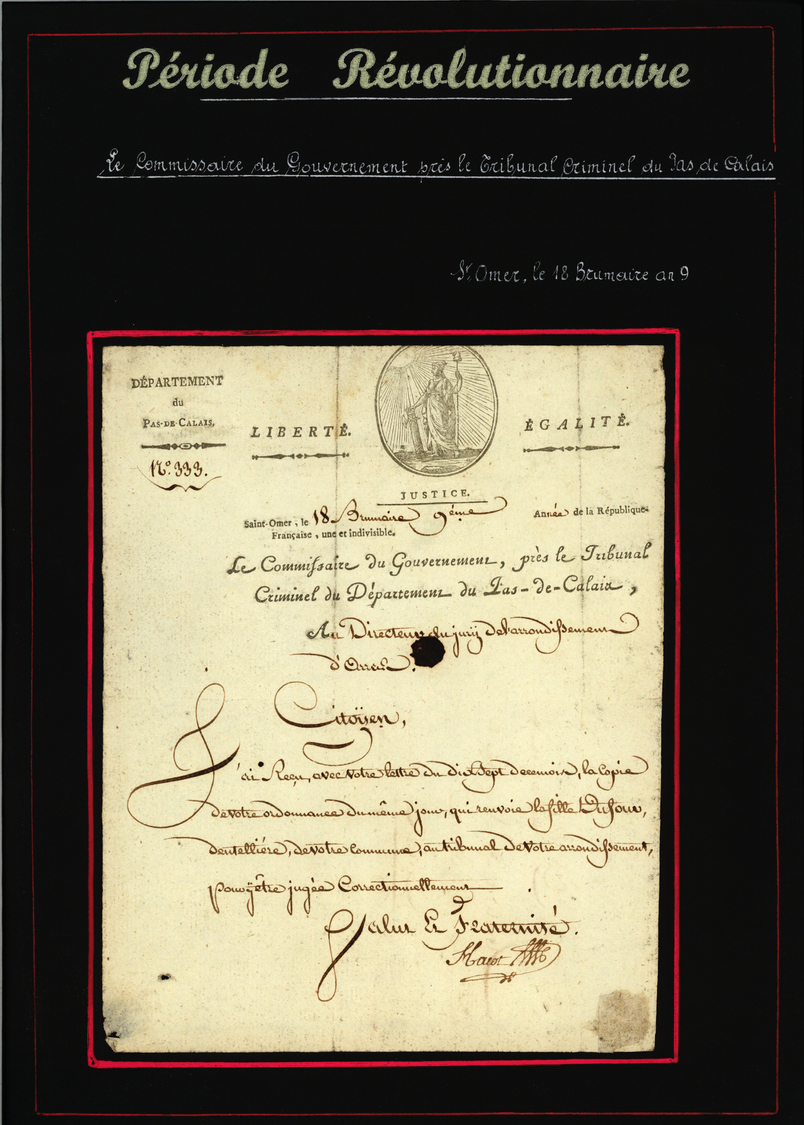 Période Révolutionnaire
Le Commissaire du Gouvernement près le Tribunal Criminel du Pas de Calais
St Omer, le 18 Brumaire an 9
DÉPARTEMENT
du
PAS-DE-CALAIS.
N.° 333.
LIBERTÉ.
ÉGALITÉ.
JUSTICE.
Saint-Omer, le 18 Brumaire 9ème Année de la République
Française, une et indivisible.
Le Commissaire du Gouvernement, près le Tribunal
Criminel du Département du Pas-de-Calais,
Au Directeur du jury de l'arrondissement
d'Arras.
Citoÿen,
J'ai Reçu, avec votre lettre du dix Sept de ce mois, la Copie
de votre ordonnance du même jour, qui renvoie la fille
dentellière, de votre commune, au tribunal de votre arrondissement,
pour ÿ être jugée Correctionnellement.
Salut Et Fraternité.